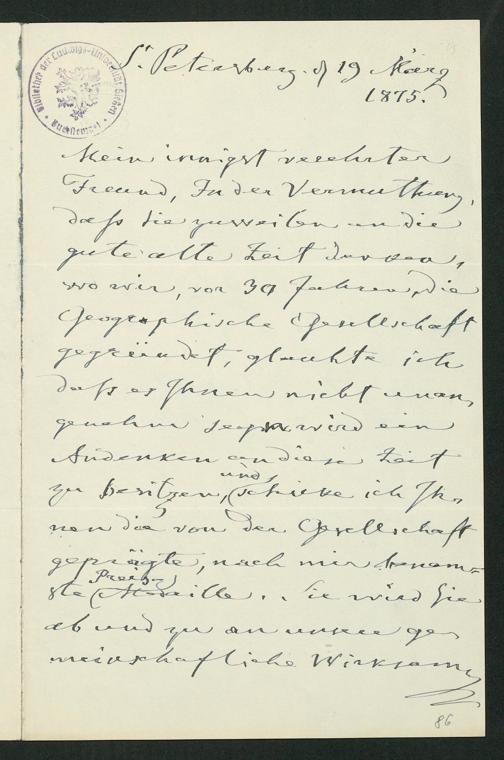 Bibliothek der Ludwigs-Universität Giessen
St. Petersburg. d 19 März
1875.
Mein innigst verehrter
Freund, In der Vermuthung,
daß Sie zuweilen an die
gute alte Zeit denken,
wo wir, vor 30 Jahren, die
Geographische Gesellschaft
gegründet, glaubte ich
daß es Ihnen nicht unan
genehm seyn wird ein
Andenken an diese Zeit
zu besitzen, und schicke ich Ih-
nen die von der Gesellschaft
geprägte, nach mir benann=
te Preis Medaille. Sie wird Sie
ab und zu an unsere ge
meinschaftliche Wirksam
86